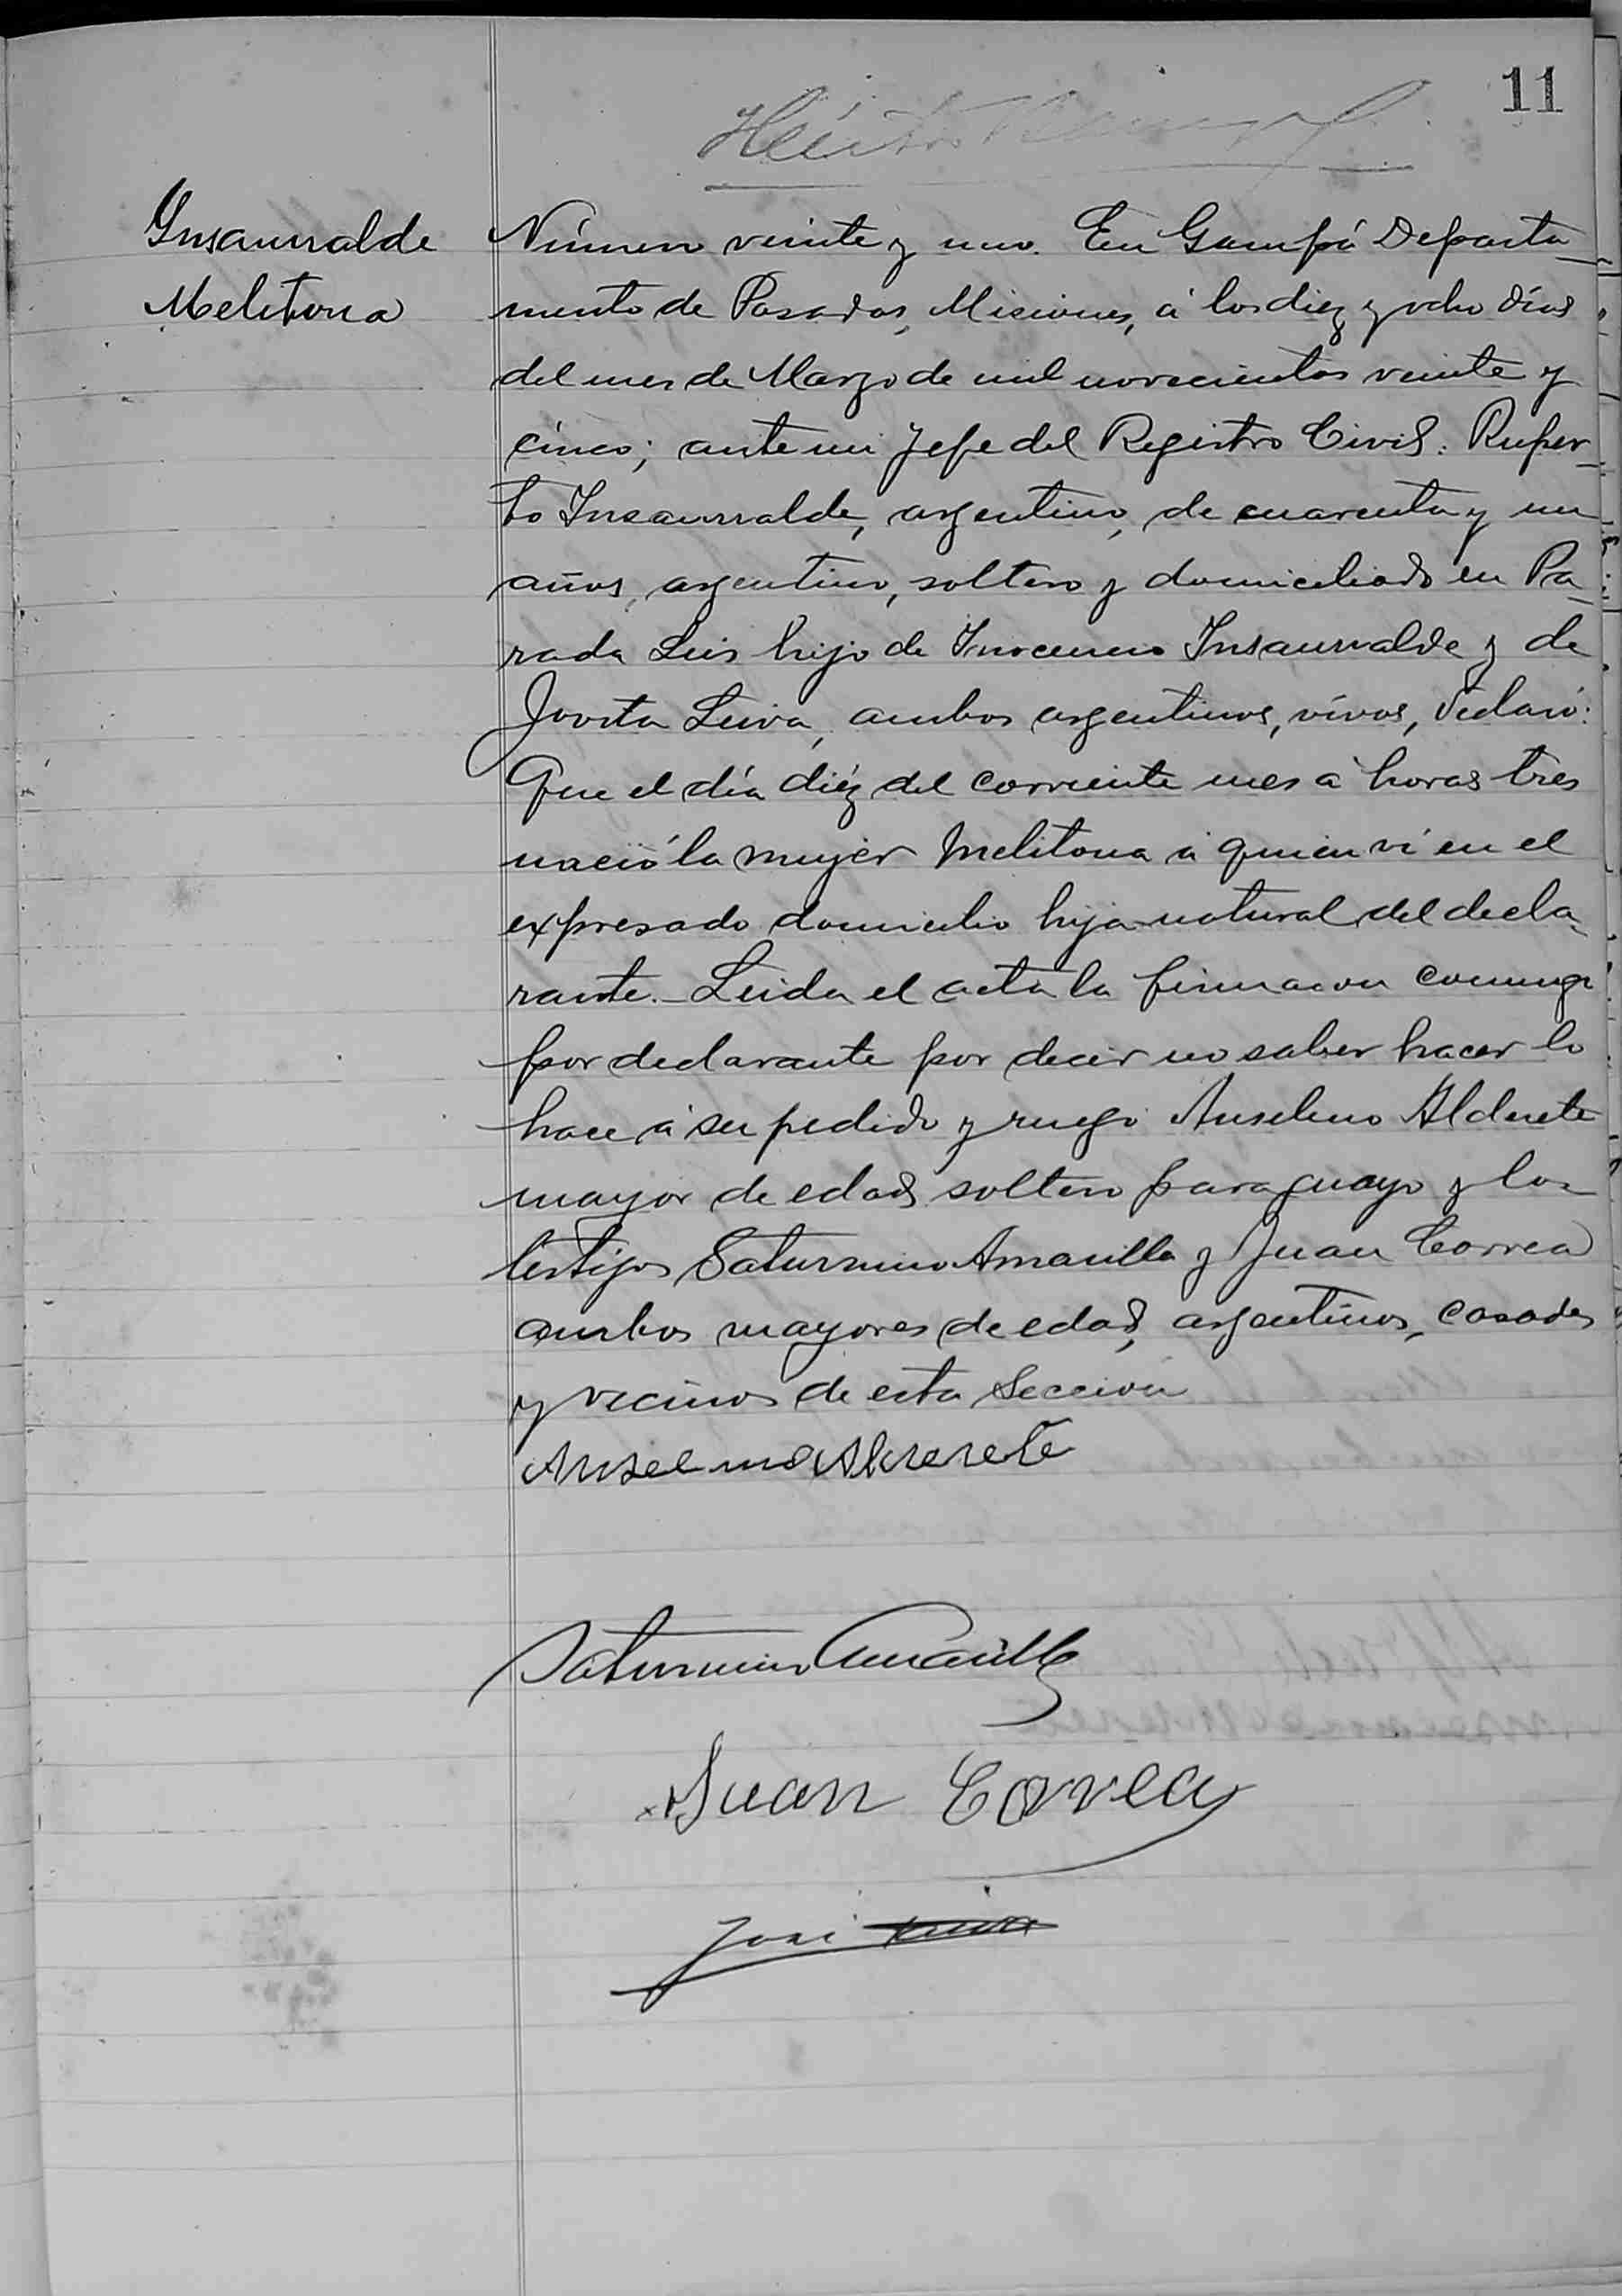 11
Insaurralde
Melitona
Número veinte y uno. En Garupá Departa
mento de Posadas, Misiones, á los diez y ocho días
del mes de Marzo de mil novecientos veinte y
cinco; ante mi Jefe del Registro Civil: Ruper
to Insaurralde, argentino, de cuarenta y un
años, argentino, soltero y domiciliado en Pa
rada Leis hijo de Inocencio Insaurralde y de
Jovita Leiva, ambos argentinos, vivos, declaró:
Que el día diéz del corriente mes á horas tres
nació la mujer Melitona á quien ví en el
expresado domicilio hija natural del decla
rante.- Leida el acta la firmaron conmigo
por declarante por decir no saber hacer lo
hace á su pedido y ruego Anselmo Alderete
mayor de edad soltero paraguayo y los
testigos Saturnino Amarilla y Juan Correa
ambos mayores de edad, argentinos, casados
y vecinos de esta Sección
Anselmo Alderete
Saturnino Amarilla
Juan Correa
José